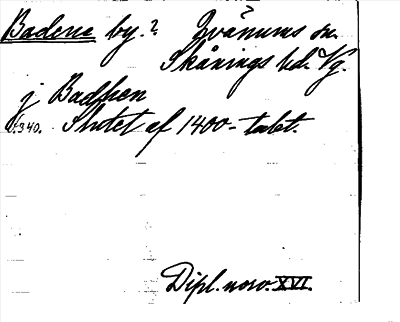 Badene by.? Qvånums sn.
Skånings hd. Vg.
j Badhen
s. 340. Slutet af 1400-talet.
Dipl. norv. XVI.